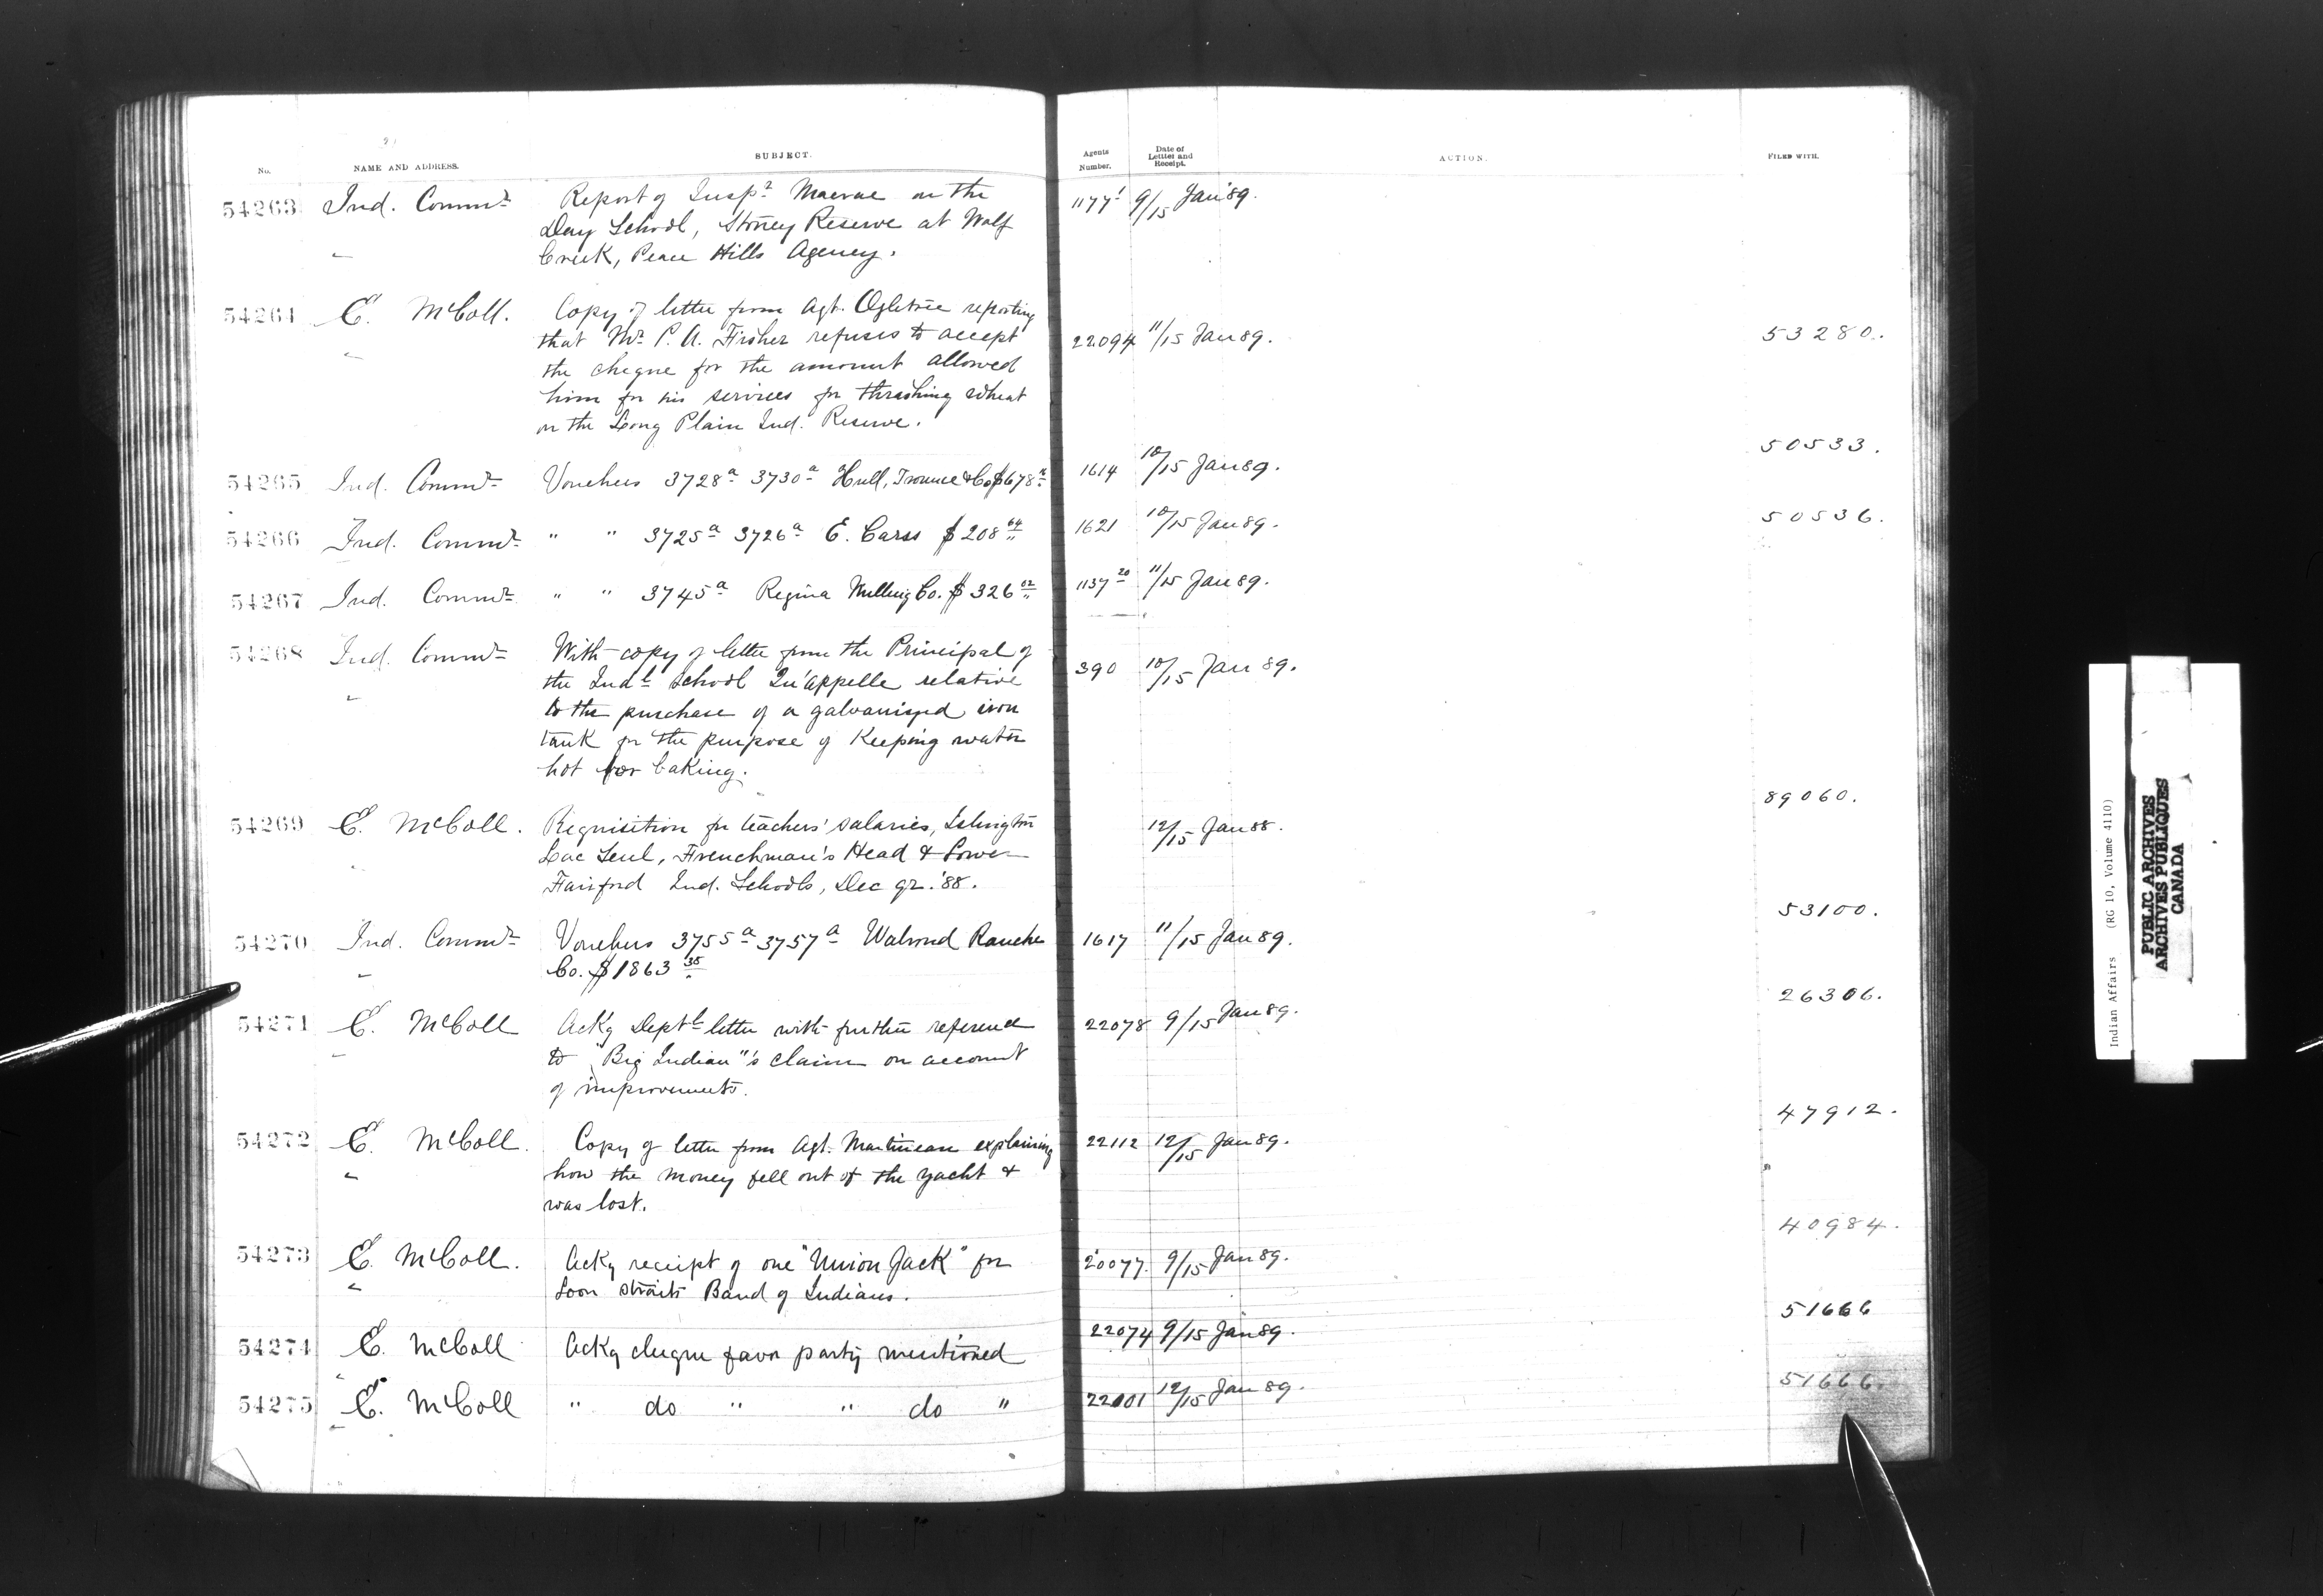 No. NAME AND ADDRESS. SUBJECT. Agents Number. Date of Letter and Receipt. ACTION. FILED WITH.
54263 Ind. Commr Report of Inspr Macrae on the 1177¹ 9/15 Jan'89.
Day School, Stoney Reserve at Wolf
Creek, Peace Hills Agency.
54264 E. McColl. Copy of letter from Agt. Ogletree reporting
that Mr. P. A. Fisher refuses to accept 22094 11/15 Jan 89. 53280.
the cheque for the amount allowed
him for his services for thrashing wheat
on the Long Plain Ind. Reserve.
50533.
54265 Ind. Commr Vouchers 3728a 3730a Hull, Trounce & Co $678 1614 10/15 Jan 89.
54266 Ind. Commr " " 3725a 3726a E. Carss $208 64 1621 10/15 Jan 89. 50536.
54267 Ind. Commr " " 3745a Regina Milling Co. $326 02 1137 20 11/15 Jan 89.
54268 Ind. Commr With copy of letter from the Principal of 390 10/15 Jan 89.
the Indl School Qu'Appelle relative
to the purchase of a galvanized iron
tank for the purpose of Keeping water
hot for baking.
89060.
54269 E. McColl. Requisition for teachers' salaries, Islington 12/15 Jan 88.
Lac Seul, Frenchman's Head & Lower
Fairford Ind. Schools, Dec qr. '88.
53100.
54270 Ind. Commr Vouchers 3755a 3757a Walrond Ranche 1617 11/15 Jan 89.
Co. $1863 35
26306.
54271 E. McColl Ackg Deptl letter with further reference 22078 9/15 Jan 89.
to "Big Indian"'s claim on account
of improvements.
47912.
54272 E. McColl. Copy of letter from Agt. Martineau explaining 22112 12/15 Jan 89.
how the money fell out of the yacht &
was lost.
40984.
54273 E. McColl. Ackg receipt of one "Union Jack" for 20077. 9/15 Jan 89.
Loon Straits Band of Indians.
51666
54274 E. McColl Ackg cheque favor party mentioned 22074 9/15 Jan 89.
54275 E. McColl " do " " do " 22001 12/15 Jan 89. 51666.
Indian Affairs (RG 10, Volume 4110)
PUBLIC ARCHIVES
ARCHIVES PUBLIQUES
CANADA